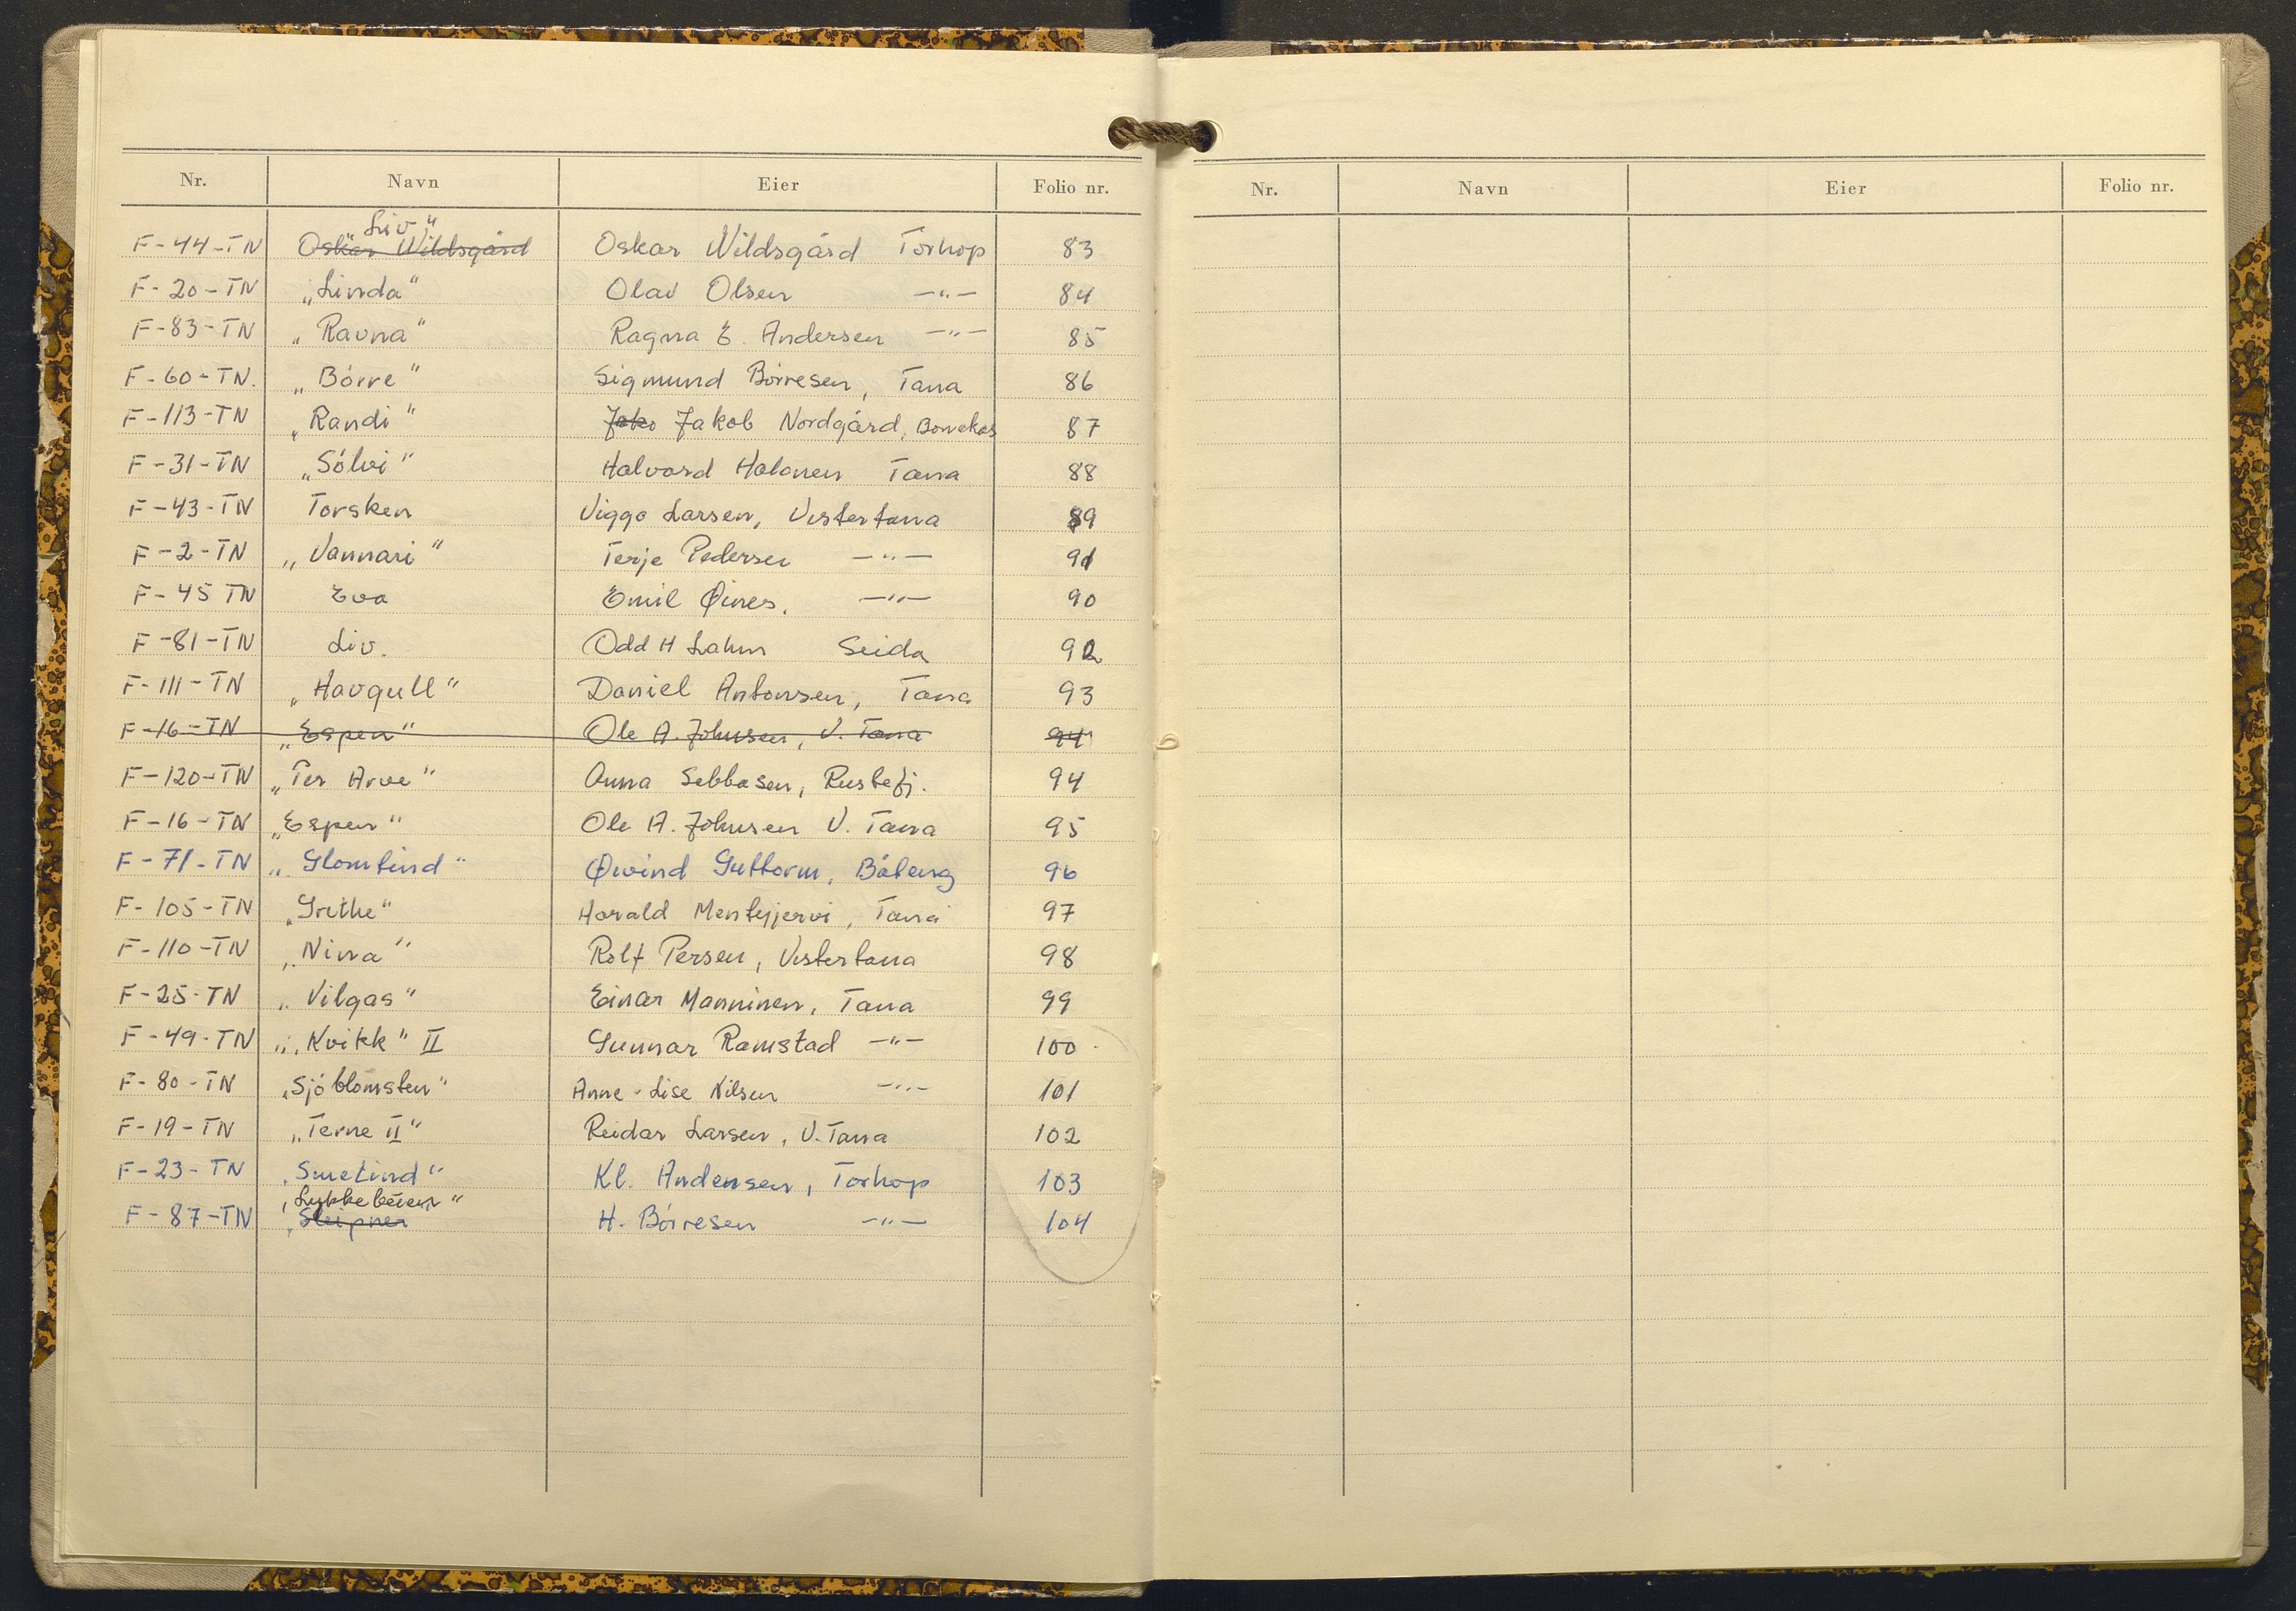 Nr. Navn Eier Folio nr.
"Liv"
F-44-TN Oskar Wildsgård Oskar Wildsgård Torhop 83
F-20-TN „Linda" Olav Olsen —"— 84
F-83-TN „Ravna" Ragna E. Andersen —"— 85
F-60-TN. „Børre" Sigmund Børresen, Tana 86
F-113-TN „Randi" Jako Jakob Nordgård, Bonakas 87
F-31-TN „Sólvi" Halvard Halonen Tana 88
F-43-TN Torsken Viggo Larsen, Vestertana 89
F-2-TN „Vannari" Terje Pedersen —"— 91
F-45 TN Eva Emil Øines. —"— 90
F-81-TN Liv. Odd H Lahm Seida 92
F-111-TN „Havgull" Daniel Antonsen, Tana 93
F-16-TN „Espen" Ole A. Johnsen, V. Tana 94
F-120-TN „Per Arve" Anna Sebbasen, Rustefj. 94
F-16-TN „Espen" Ole A. Johnsen V. Tana 95
F-71-TN „Glomtind" Øivind Guttorm, Båteng 96
F-105-TN „Grethe" Harald Mentyjervi, Tana 97
F-110-TN „Nina" Rolf Persen, Vestertana 98
F-25-TN „Vilgas" Einar Manninen, Tana 99
F-49-TN „Kvikk" II Gunnar Ramstad —"— 100
F-80-TN „Sjóblomsten" Anne-Lise Nilsen —"— 101
F-19-TN „Terne II" Reidar Larsen, V. Tana 102
F-23-TN „Smetind" Kl. Andersen, Torhop 103
F-87-TN „Sleipner H. Børresen —"— 104
Nr. Navn Eier Folio nr.